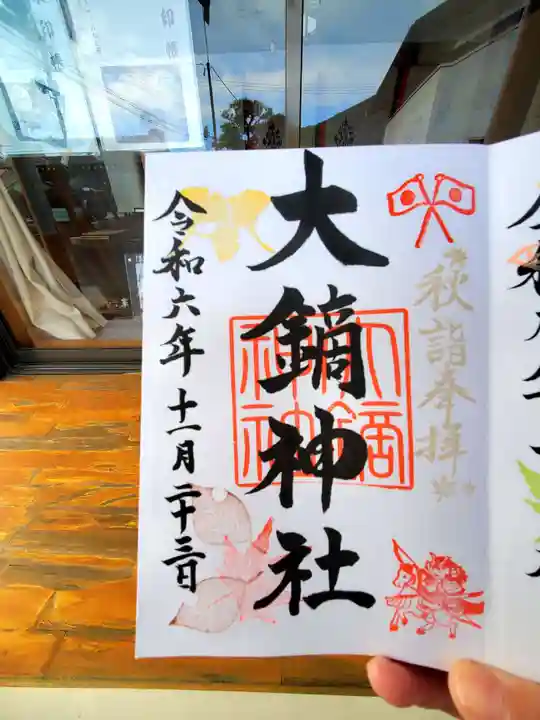 秋詣奉拝
大鏑神社
令和六年十一月二十三日